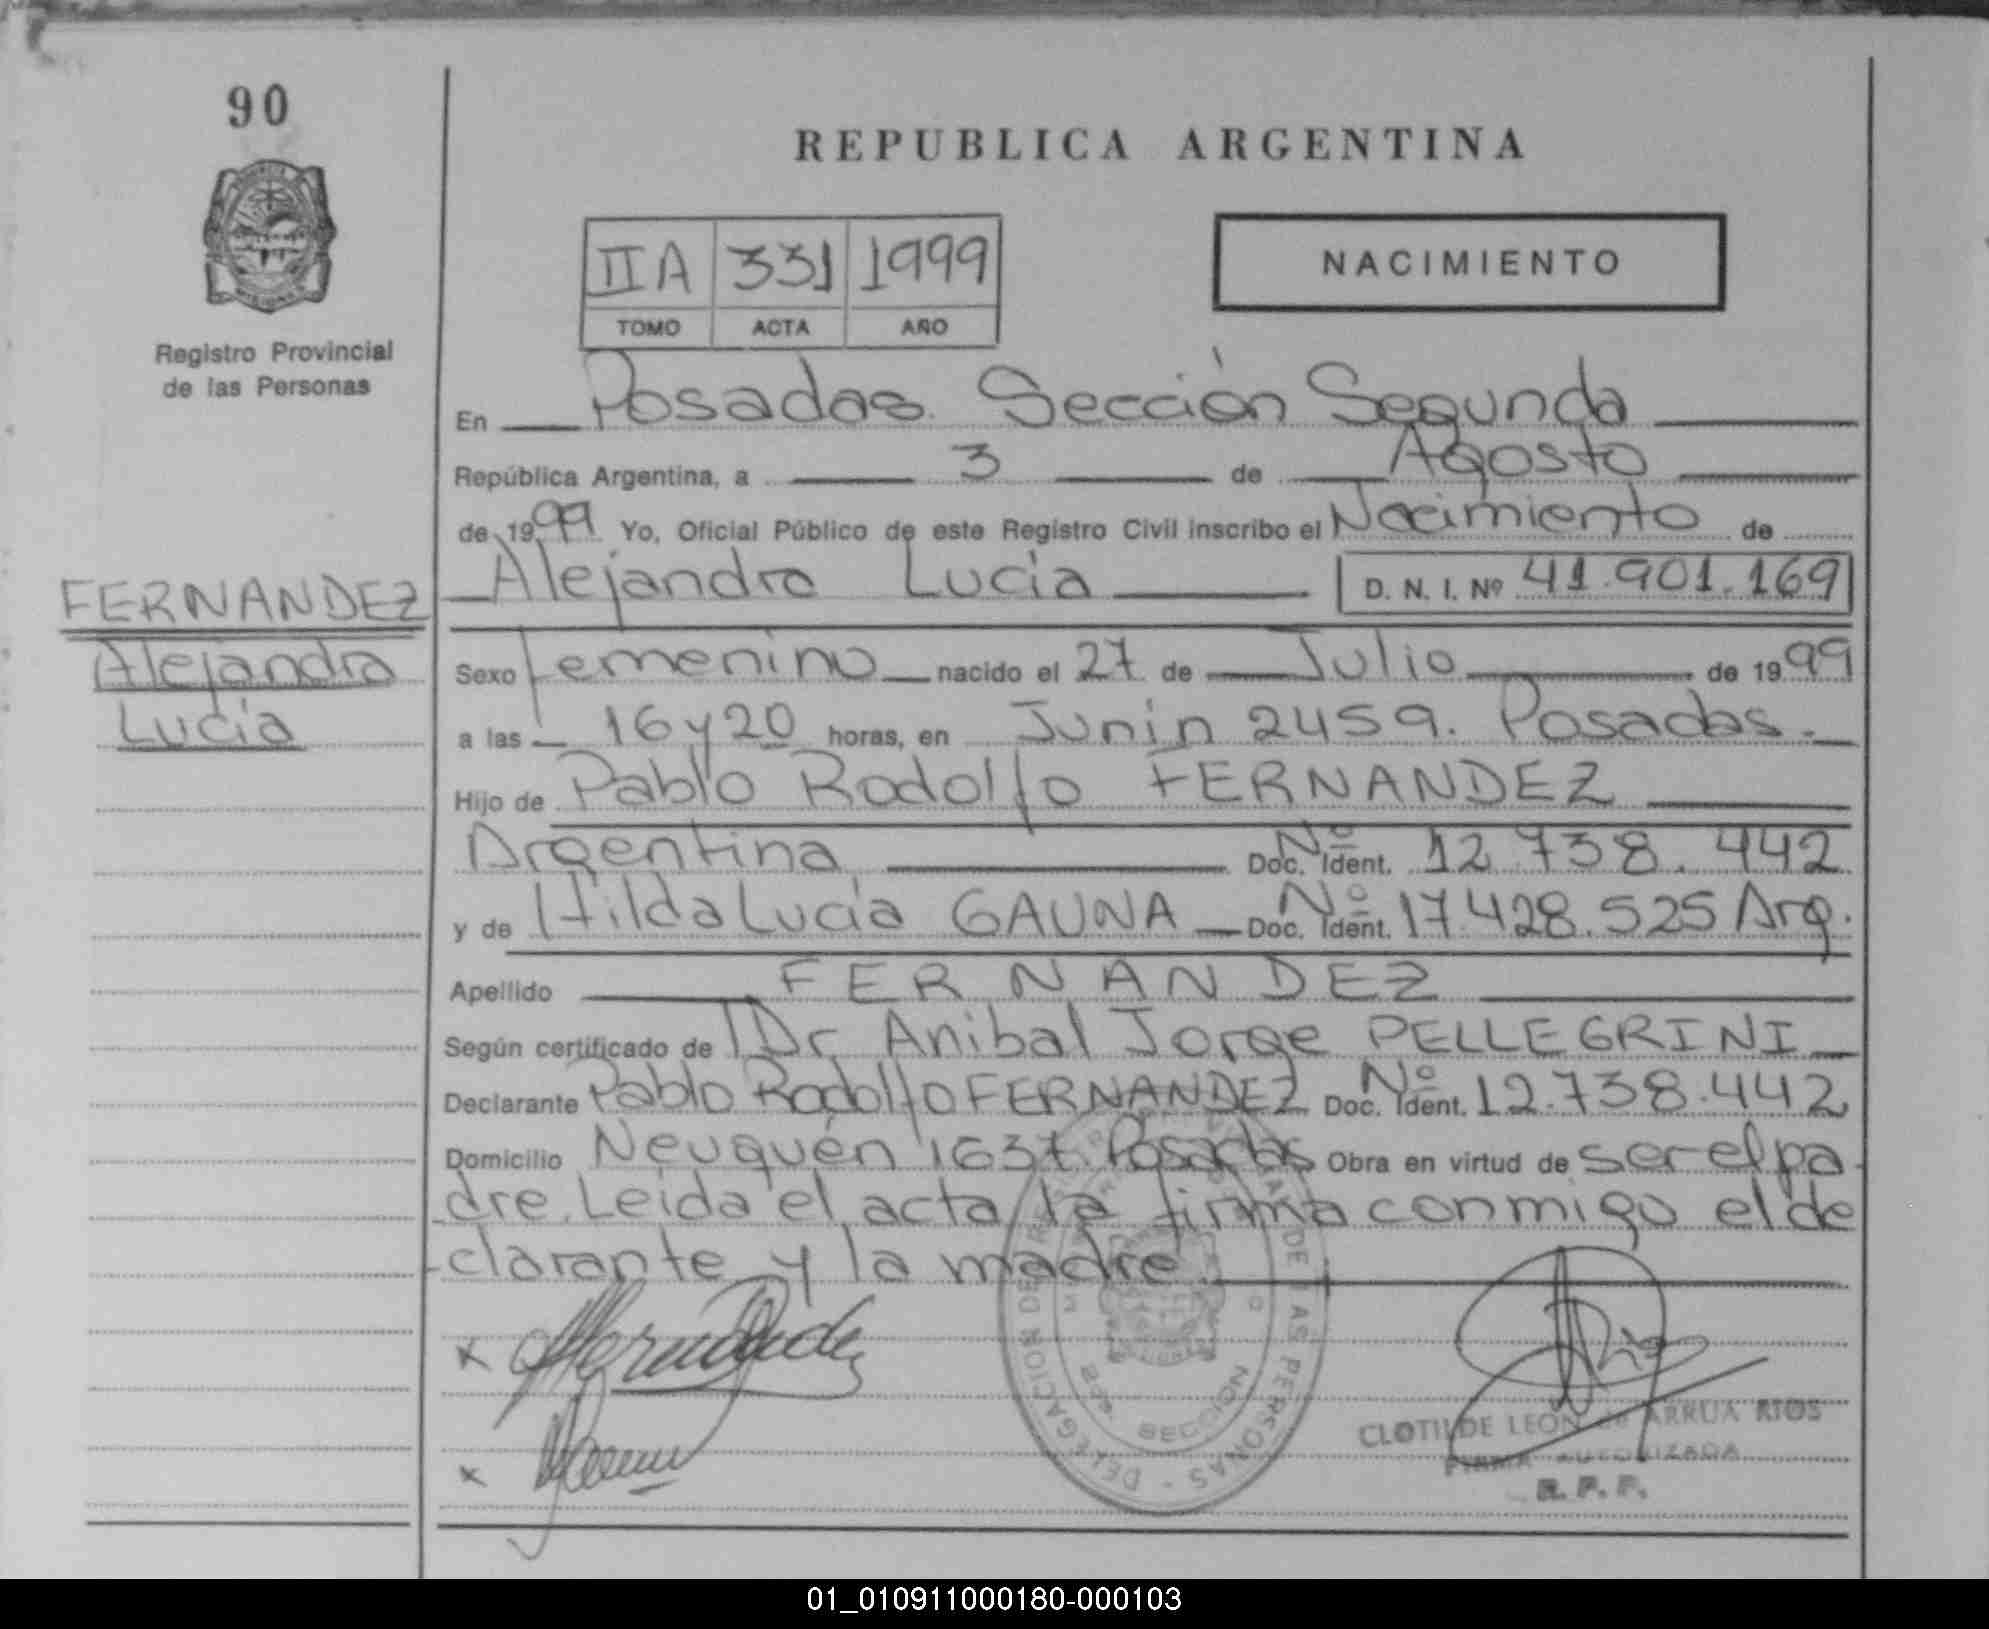 90
REPUBLICA ARGENTINA
IIA 331 1999
TOMO ACTA AÑO
NACIMIENTO
Registro Provincial
de las Personas
En Posadas. Sección Segunda
República Argentina, a 3 de Agosto
de 1999 Yo, Oficial Público de este Registro Civil inscribo el Nacimiento de
FERNANDEZ
Alejandra
Lucía
Alejandra Lucía D. N. I. Nº 41.901.169
Sexo femenino nacido el 27 de Julio de 1999
a las 16 y 20 horas, en Junín 2459. Posadas.
Hijo de Pablo Rodolfo FERNANDEZ
Argentina Doc. Ident. Nº 12.738.442
y de Hilda Lucía GAUNA Doc. Ident. Nº 17.428.525 Arg.
Apellido FERNANDEZ
Según certificado de Dr Anibal Jorge PELLEGRINI
Declarante Pablo Rodolfo FERNANDEZ Doc. Ident. Nº 12.738.442
Domicilio Neuquén 1637. Posadas Obra en virtud de ser el pa
dre. Leida el acta la firma conmigo el de
clarante y la madre.
DELEGACION DE LAS PERSONAS
SECCION
CLOTILDE LEON de ARRUA RIOS
FIRMA AUTORIZADA
R. P. P.
01_010911000180-000103